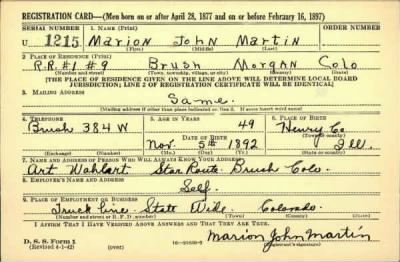 REGISTRATION CARD—(Men born on or after April 28, 1877 and on or before February 16, 1897)
SERIAL NUMBER 1. NAME (Print) ORDER NUMBER
U 1215 Marion John Martin
(First) (Middle) (Last)
2. PLACE OF RESIDENCE (Print)
R.R.#1 #9 Brush Morgan Colo
(Number and street) (Town, township, village, or city) (County) (State)
[THE PLACE OF RESIDENCE GIVEN ON THE LINE ABOVE WILL DETERMINE LOCAL BOARD
JURISDICTION; LINE 2 OF REGISTRATION CERTIFICATE WILL BE IDENTICAL]
3. MAILING ADDRESS
Same.
[Mailing address if other than place indicated on line 2. If same insert word same]
4. TELEPHONE 5. AGE IN YEARS 6. PLACE OF BIRTH
49 Henry Co
Brush 384W DATE OF BIRTH (Town or county)
Nov. 5th 1892 Ill.
(Exchange) (Number) (Mo.) (Day) (Yr.) (State or country)
7. NAME AND ADDRESS OF PERSON WHO WILL ALWAYS KNOW YOUR ADDRESS
Art Wahlart Star Route Brush Colo.
8. EMPLOYER'S NAME AND ADDRESS
Self.
9. PLACE OF EMPLOYMENT OR BUSINESS
Truck Line. State Wide. Colorado.
(Number and street or R. F. D. number) (Town) (County) (State)
I AFFIRM THAT I HAVE VERIFIED ABOVE ANSWERS AND THAT THEY ARE TRUE.
D. S. S. Form 1
(Revised 4-1-42) (over) Marion John Martin
(Registrant's signature)